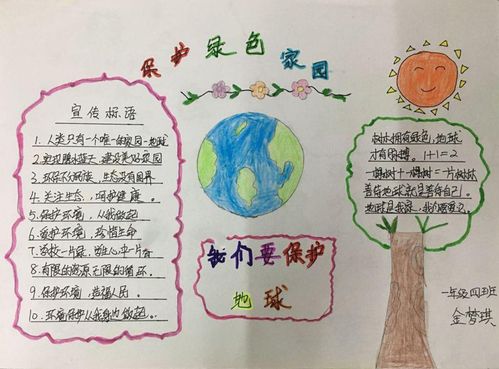 保护绿色家园
宣传标语
1. 人类只有一个唯一的家园—地球
2. 建设美好家园
3. 环保不分民族,生态没有国界
4. 关注生态,呵护健康。
5. 保护环境,从我做起
6. 爱护环境,珍惜生命
7.
8. 有限的资源无限的循环。
9. 保护环境,造福人民。
10. 环境保护从我身边做起。
我们要保护
地球
树木拥有绿色,地球
才有脉搏。1+1=2
一棵树+一棵树=一片树林
善待地球就是善待自己。
地球是我家,
一年级四班
金梦琪